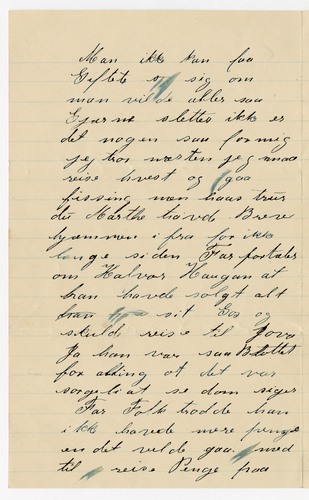 Man ikke kan faa
Giftete sig om
man vilde aller saa
Gjærne slettes ikke er
det nogen saa for mig
jeg tror næsten jeg maa
reise hvest og gaa
fissing men haas trur
du Marthe havde Breve
hjemmen i fra for ikke
lange siden Far fortaler
om Halvor Haugan at
han havde solgt alt
han sit Gos og
skuld reise til Jova
Ja han var saa
for alting at det var
sørgeli at se dom siger
Far Folk trodde han
ikke havede mere penge
en det vilde gaa med
til reise Penge fraa